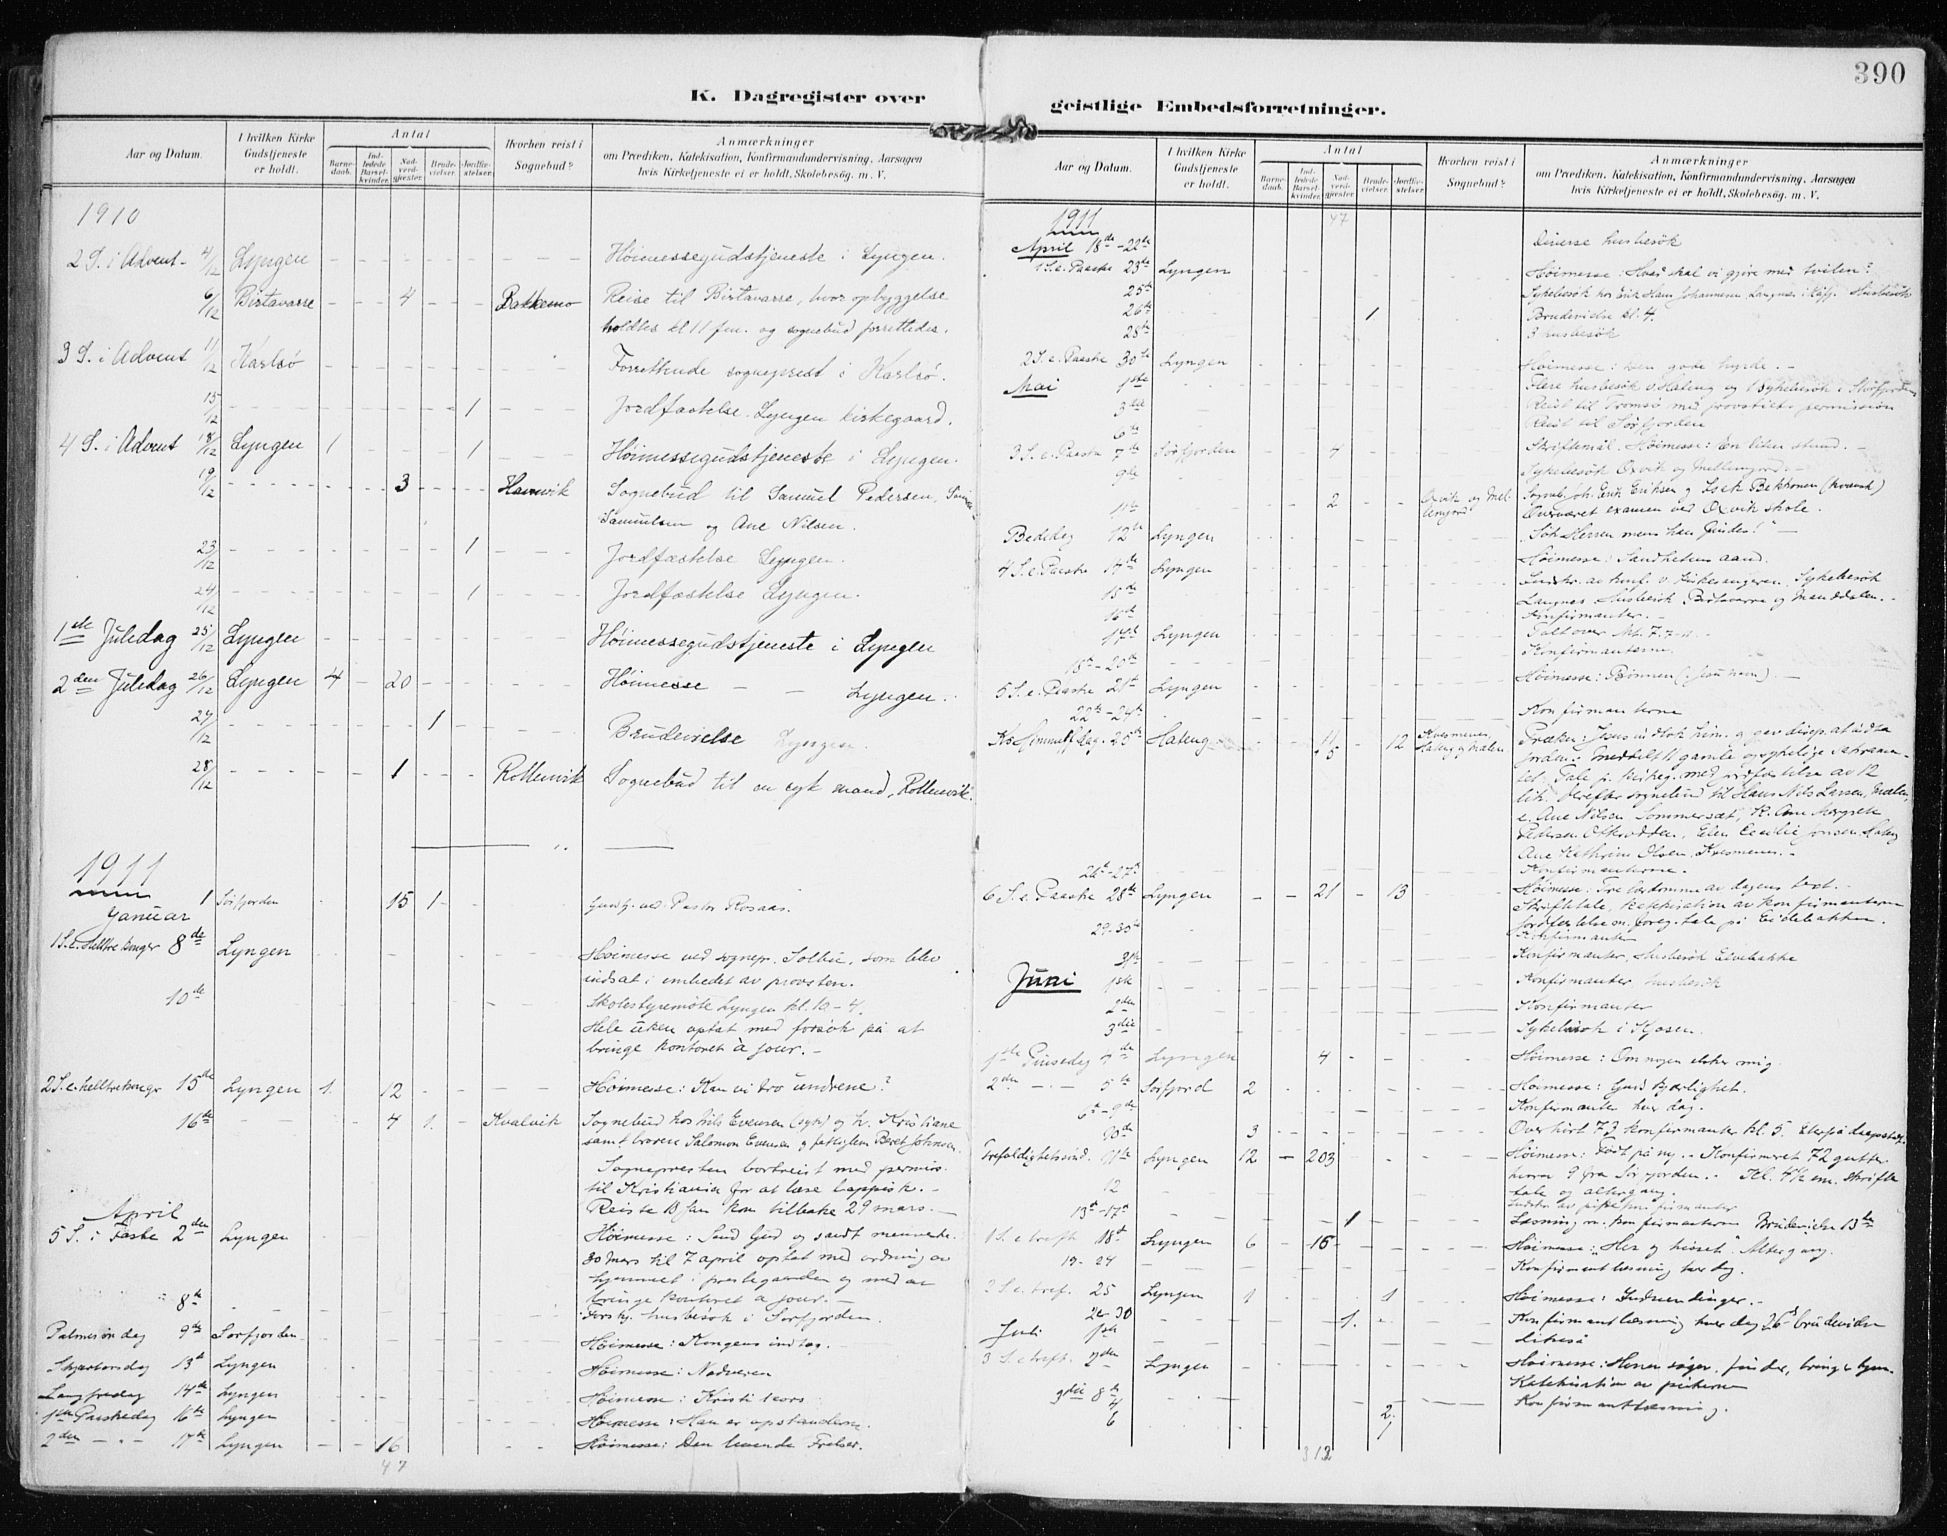 390
K. Dagregister over
geistlige Embedsforretninger.
Aar og Datum.
I hvilken Kirke Gudstjeneste er holdt.
Antal
Barne-daab.
Ind-ledede Barsel-kvinder.
Nad-verd-gjester.
Brude-vielser.
Jordfæ-stelser.
Hvorhen reist i Sognebud?
Anmærkninger
om Prædiken, Katekisation, Konfirmandundervisning, Aarsagen
hvis Kirketjeneste ei er holdt, Skolebesøg. m. V.
1910
2 S. i Advent 4/12 Lyngen Høimessegudstjeneste i Lyngen.
6/12 Birtavarre 4 Bakkemo Reise til Birtavarre, hvor opbyggelse
holdtes kl 11 fm. og sognebud forrettedes.
3 S. i Advent 11/12 Karlsø Forrettende sogneprest i Karlsø.
15/12 1 Jordfæstelse Lyngen kirkegaard.
4 S. i Advent 18/12 Lyngen 1 1 Høimessegudstjeneste i Lyngen.
19/12 3 Havnvik Sognebud til Samuel Pedersen,
Samuelsen og Ane Nilsen.
23/12 1 Jordfæstelse Lyngen.
24/12 1 Jordfæstelse Lyngen.
1ste Juledag 25/12 Lyngen Høimessegudstjeneste i Lyngen
2den Juledag 26/12 Lyngen 4 20 Høimesse — — Lyngen.
27/12 1 Brudevielse Lyngen.
28/12 1 Rottenvik Sognebud til en syk mand, Rottenvik.
1911
Januar 1 Sørfjorden 15 1 Gudstj. ved Pastor Rosaas.
1 S. e. Helltrekonger 8de Lyngen Høimesse ved sognepr. Solbu, som blev
indsat i embedet av provsten.
10de Skolestyremøte Lyngen kl. 10 - 4.
Hele uken optat med forsøk på at
bringe kontoret à jour. -
2 S. e. helltrekonger 15de Lyngen 1. 12 Høimesse: Kan vi tro undrene?
16de 4 1. Kvalvik Sognebud hos Nils Evensen (syk) og h. Kristiane
samt broren Salomon Evensen og fattiglem Beret Johnsen.
Sognepresten bortreist med permis.
til Kristiania for at læse lappisk. -
Reiste 18 jan kom tilbake 29 mars. -
April
5 S. i Faste 2den Lyngen Høimesse: Sand Gud og sandt menneske.
30 mars til 7 april optat med ordning av
hjemmet i prestegaarden og med at
bringe kontoret a jour. -
8de Forskj. husbesøk i Sørfjorden.
Palmesøndag 9de Sorfjorden Høimesse: Kongens indtog.
Skjærtorsdag 13de Lyngen Høimesse: Nadveren
Langfredag 14de Lyngen Høimesse: Kristi kors
1ste Paaskedag 16de Lyngen Høimesse: Han er opstanden.
2den — " — 17de Lyngen 16 Høimesse: Den levende Frelser.
47
Aar og Datum.
I hvilken Kirke Gudstjeneste er holdt.
Antal
Barne-daab.
Ind-ledede Barsel-kvinder.
Nad-verd-gjester.
Brude-vielser.
Jordfæ-stelser.
Hvorhen reist i Sognebud?
Anmærkninger
om Prædiken, Katekisation, Konfirmandundervisning, Aarsagen
hvis Kirketjeneste ei er holdt, Skolebesøg. m. V.
1911 47
April 18de-22de Diverse husbesøk
1 S. e. Paaske 23de Lyngen Høimesse: Hvad skal vi gjøre med tvilen?
25de Sykebesøk hos Erik Hans Johannesen Langnes i Kåfj. Husbesøk
26de 1 Brudevielse kl. 4.
28de 3 husbesøk
2 S. e. Paaske 30te Lyngen Høimesse: Den gode hyrde. -
Mai 1ste Flere husbesøk v. Hateng og 1 sykebesøk i Storfjorden
3die Reist til Tromsø med provstiets permission
6te Reist til Sørfjorden
3 S. e. Paaske 7de Sørfjorden 4 Skriftemål. Høimesse: En liten stund. -
9de Sykebesøk Oxvik og Mellemjord. -
11te 2 Oxvik og Mellemjord Sogneb. Joh. Erik Eriksen og Isak Bekkonen (kvænsk)
Overværet examen ved Oxvik skole.
Bededag 12te Lyngen "Søk Herren mens han findes!" -
4 S. e. Paaske 14de Lyngen Høimesse: Sandhetens aand.
15de Indskr. av konf. v. kirkesangeren. Sykebesøk
Langnes. Husbesøk Birtavarre og Manddalen. -
16de Konfirmanter. -
17de Lyngen Tale over Mt. 7. 7-11. -
18de-20de Konfirmanterne.
5 S. e. Paaske 21de Lyngen Høimesse: Bønnen (i Jesu navn). -
22de-24de Konfirmanterne
Kr. Himmelf. dag. 25de Hateng 11 5 12 Kvesmenes, Hateng og Mælen
26de-27de Konfirmanterne. -
6 S. e. Paaske 28de Lyngen 21 13 Høimesse: Tre lærdomme av dagens text. -
29-30te Konfirmanter
31te Konfirmanter, Husbesøk Elvebakke
Juni 1ste Konfirmanter husbesøk
2den Konfirmanter
3die Sykebesøk i Kjosen.
1ste Pinsedag 4de Lyngen 4 Høimesse: Om nogen elsker mig.
2den — " — 5te Sørfjord 2 Høimesse: Guds kjærlighet.
6te-9de Konfirmanter hver dag.
10de 3 Overhørt 73 konfirmanter kl. 5.
Trefoldighetssønd. 11te Lyngen 12 203 Høimesse: Født på ny. - Konfirmeret 72 gutter
hvorav 9 fra Sørfjorden. - Kl. 4 1/2 em. skrifte
tale og altergang.
12
13de-17de 1 Læsning m. konfirmanterne Brudevielse 13de
1 S. e. trefh. 18de Lyngen 6 15 Høimesse: "Her og hisset". Altergang.
19-24 Konfirmantlæsning hver dag.
2 S. e. tref. 25 Lyngen 1 1 Høimesse: Indvendinger. -
26-30 1. Konfirmantlæsning hver dag 26de brudevielse
Juli 1ste likeså
3 S. e. trefh. 2den Lyngen Høimesse: Herren søger, finder, bringer hjem
Katekisation av pikerne
3die 8de Konfirmantlæsning.
2
313